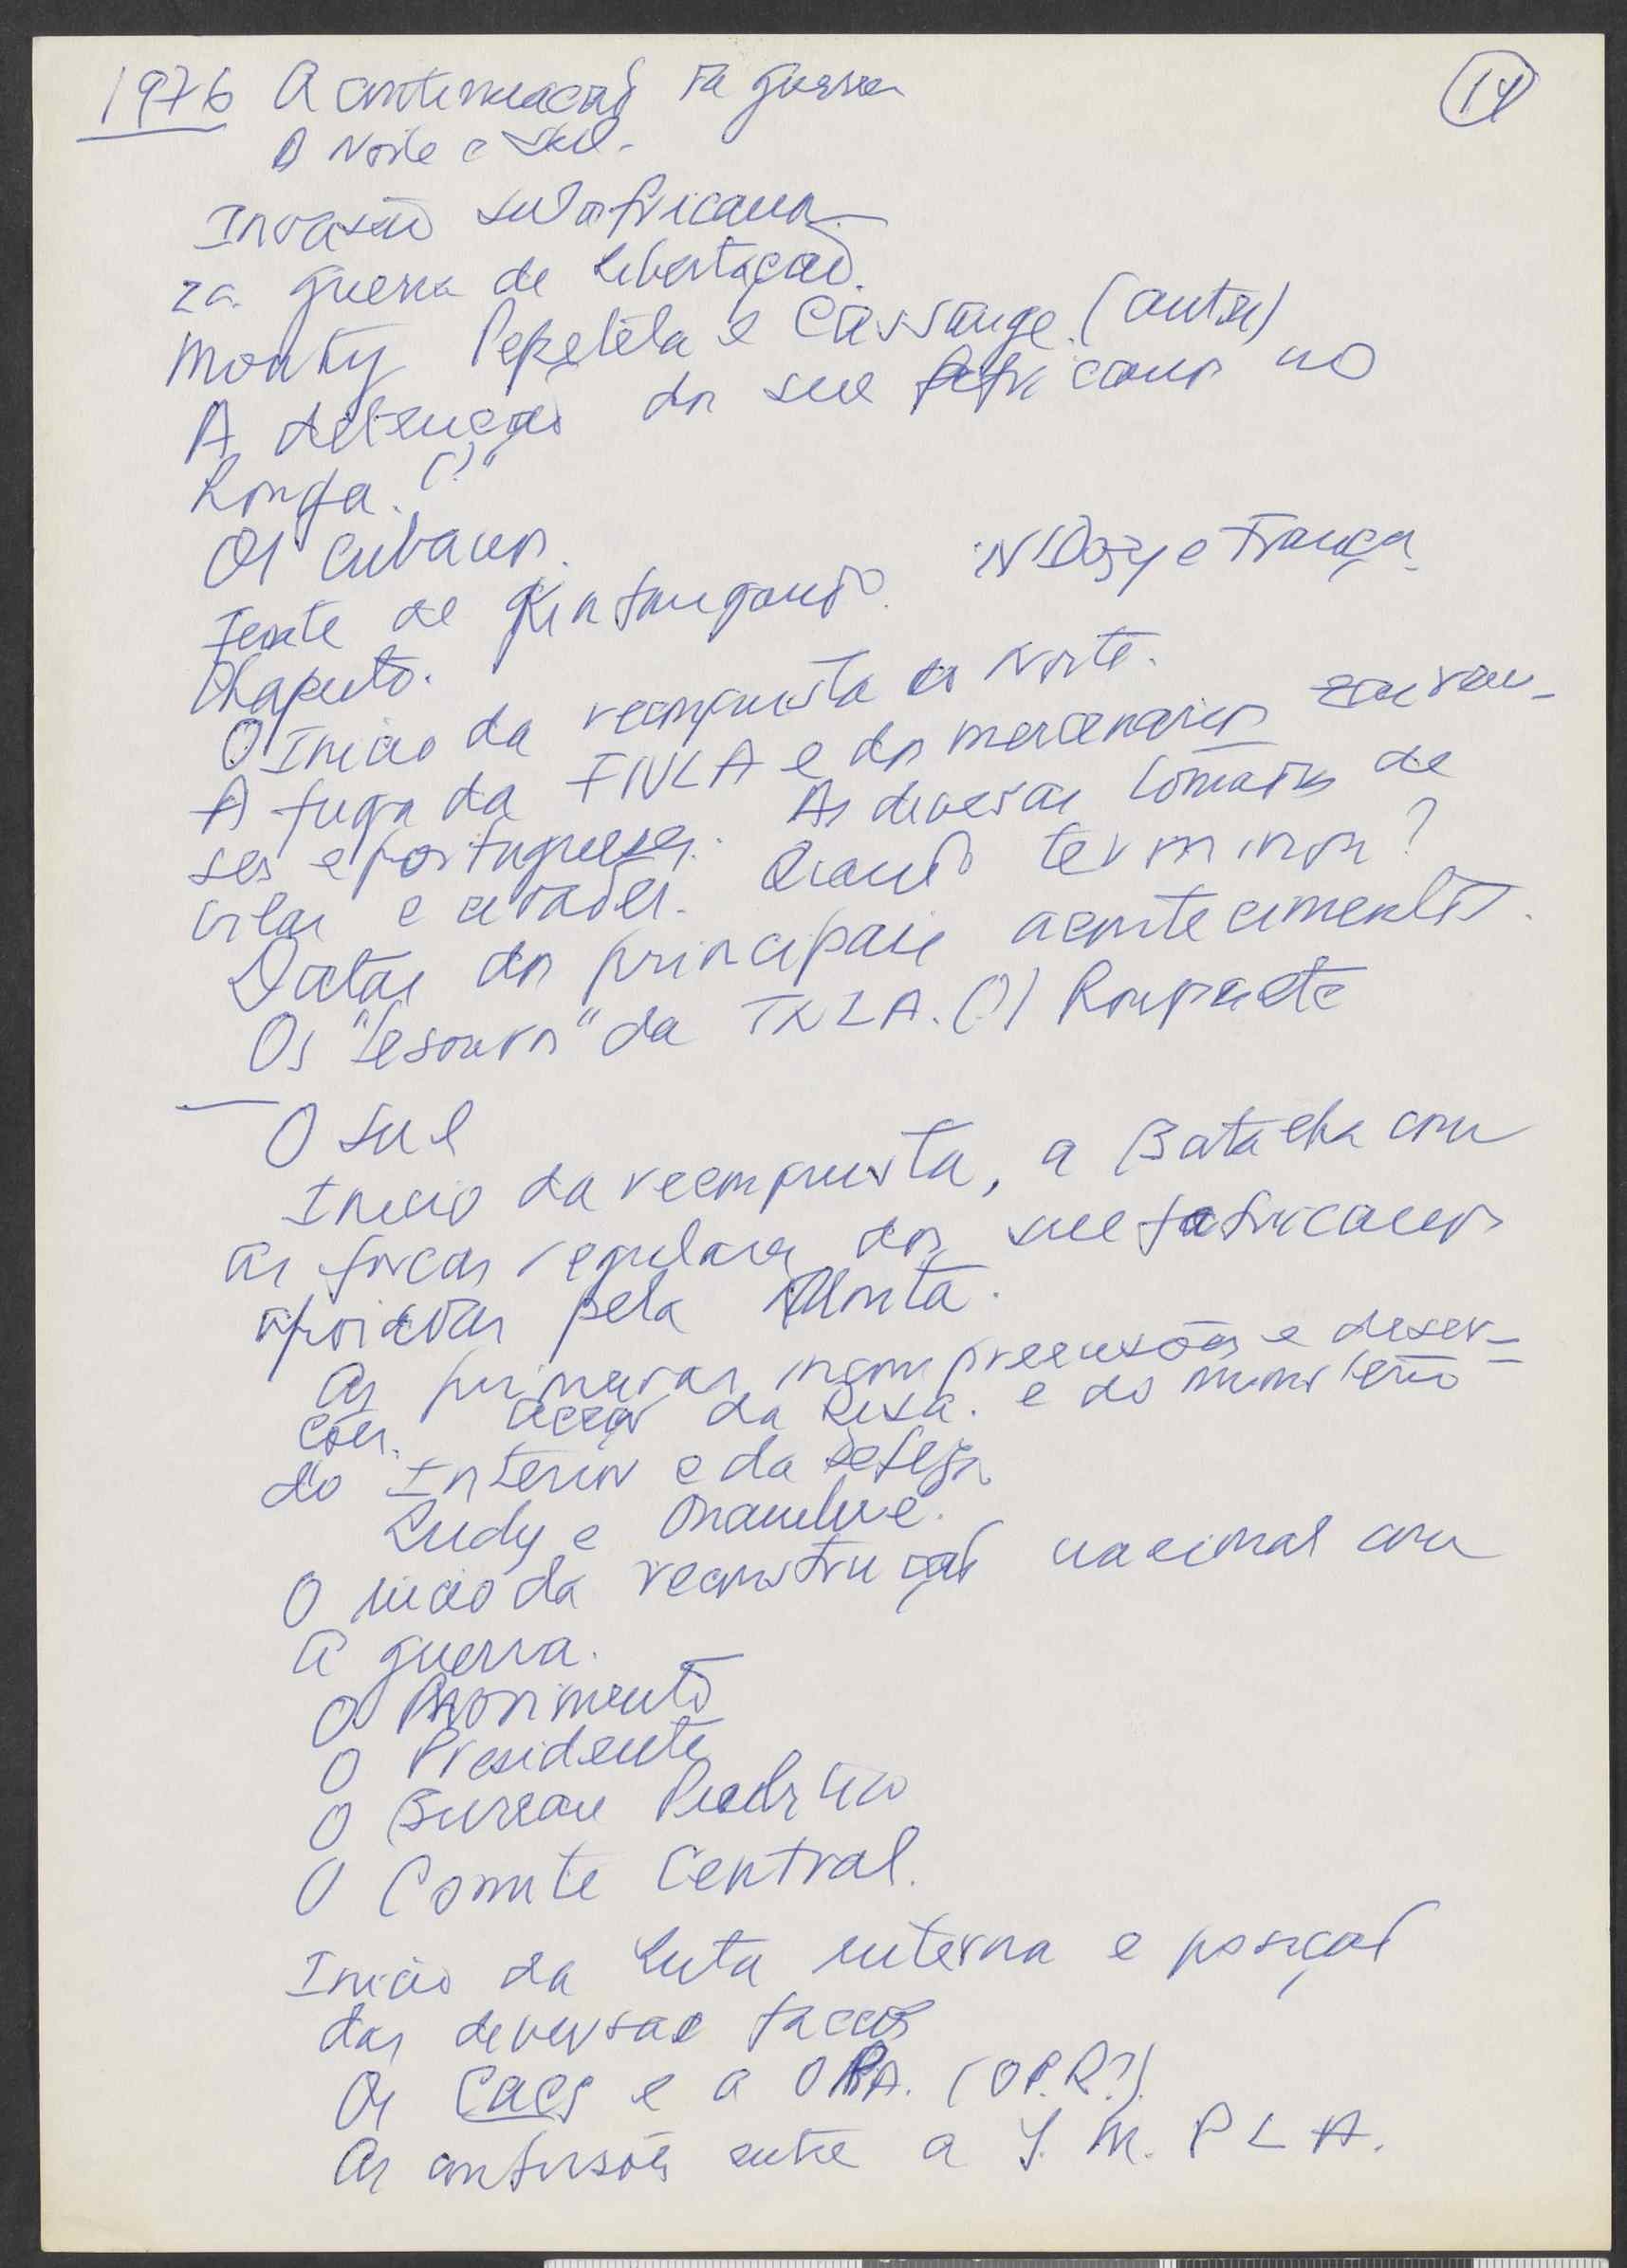 1976 A continuação da guerra
(14)
A Norte e Sul.
Invasão sulafricana
2a. guerra de libertação.
Monty Pepetela e Cassange. (outros)
A detenção dos sul africanos no
Longa. (?)
Os cubanos.
Frente de Kinfangondo. N'Dozy e França.
Dhaputo.
O Inicio da reconquista do Norte.
A fuga da FNLA e dos mercenarios zairen-
ses e portugueses. As diversas tomadas de
vilas e cidades. Quando terminou?
Datas dos principais acontecimentos.
Os "tesouros" da FNLA. (?)
O Sul
Inicio da reconquista, a Batalha com
as forcas regulares dos sul africanos
apoiadas pela Unita.
As primeiras incompreensões e deser-
ções. Acção da Disa. e do ministerio
do Interior e da Defesa
Ludy e Onambwe.
O inicio da reconstrução nacional com
a guerra.
O Movimento
O Presidente
O Bureau Politico
O Comite Central.
Inicio da luta interna e posiçao
das diversas facções
Os Cacs e a OPA. (O P. R.?).
As confusões entre a J. M. P L A.